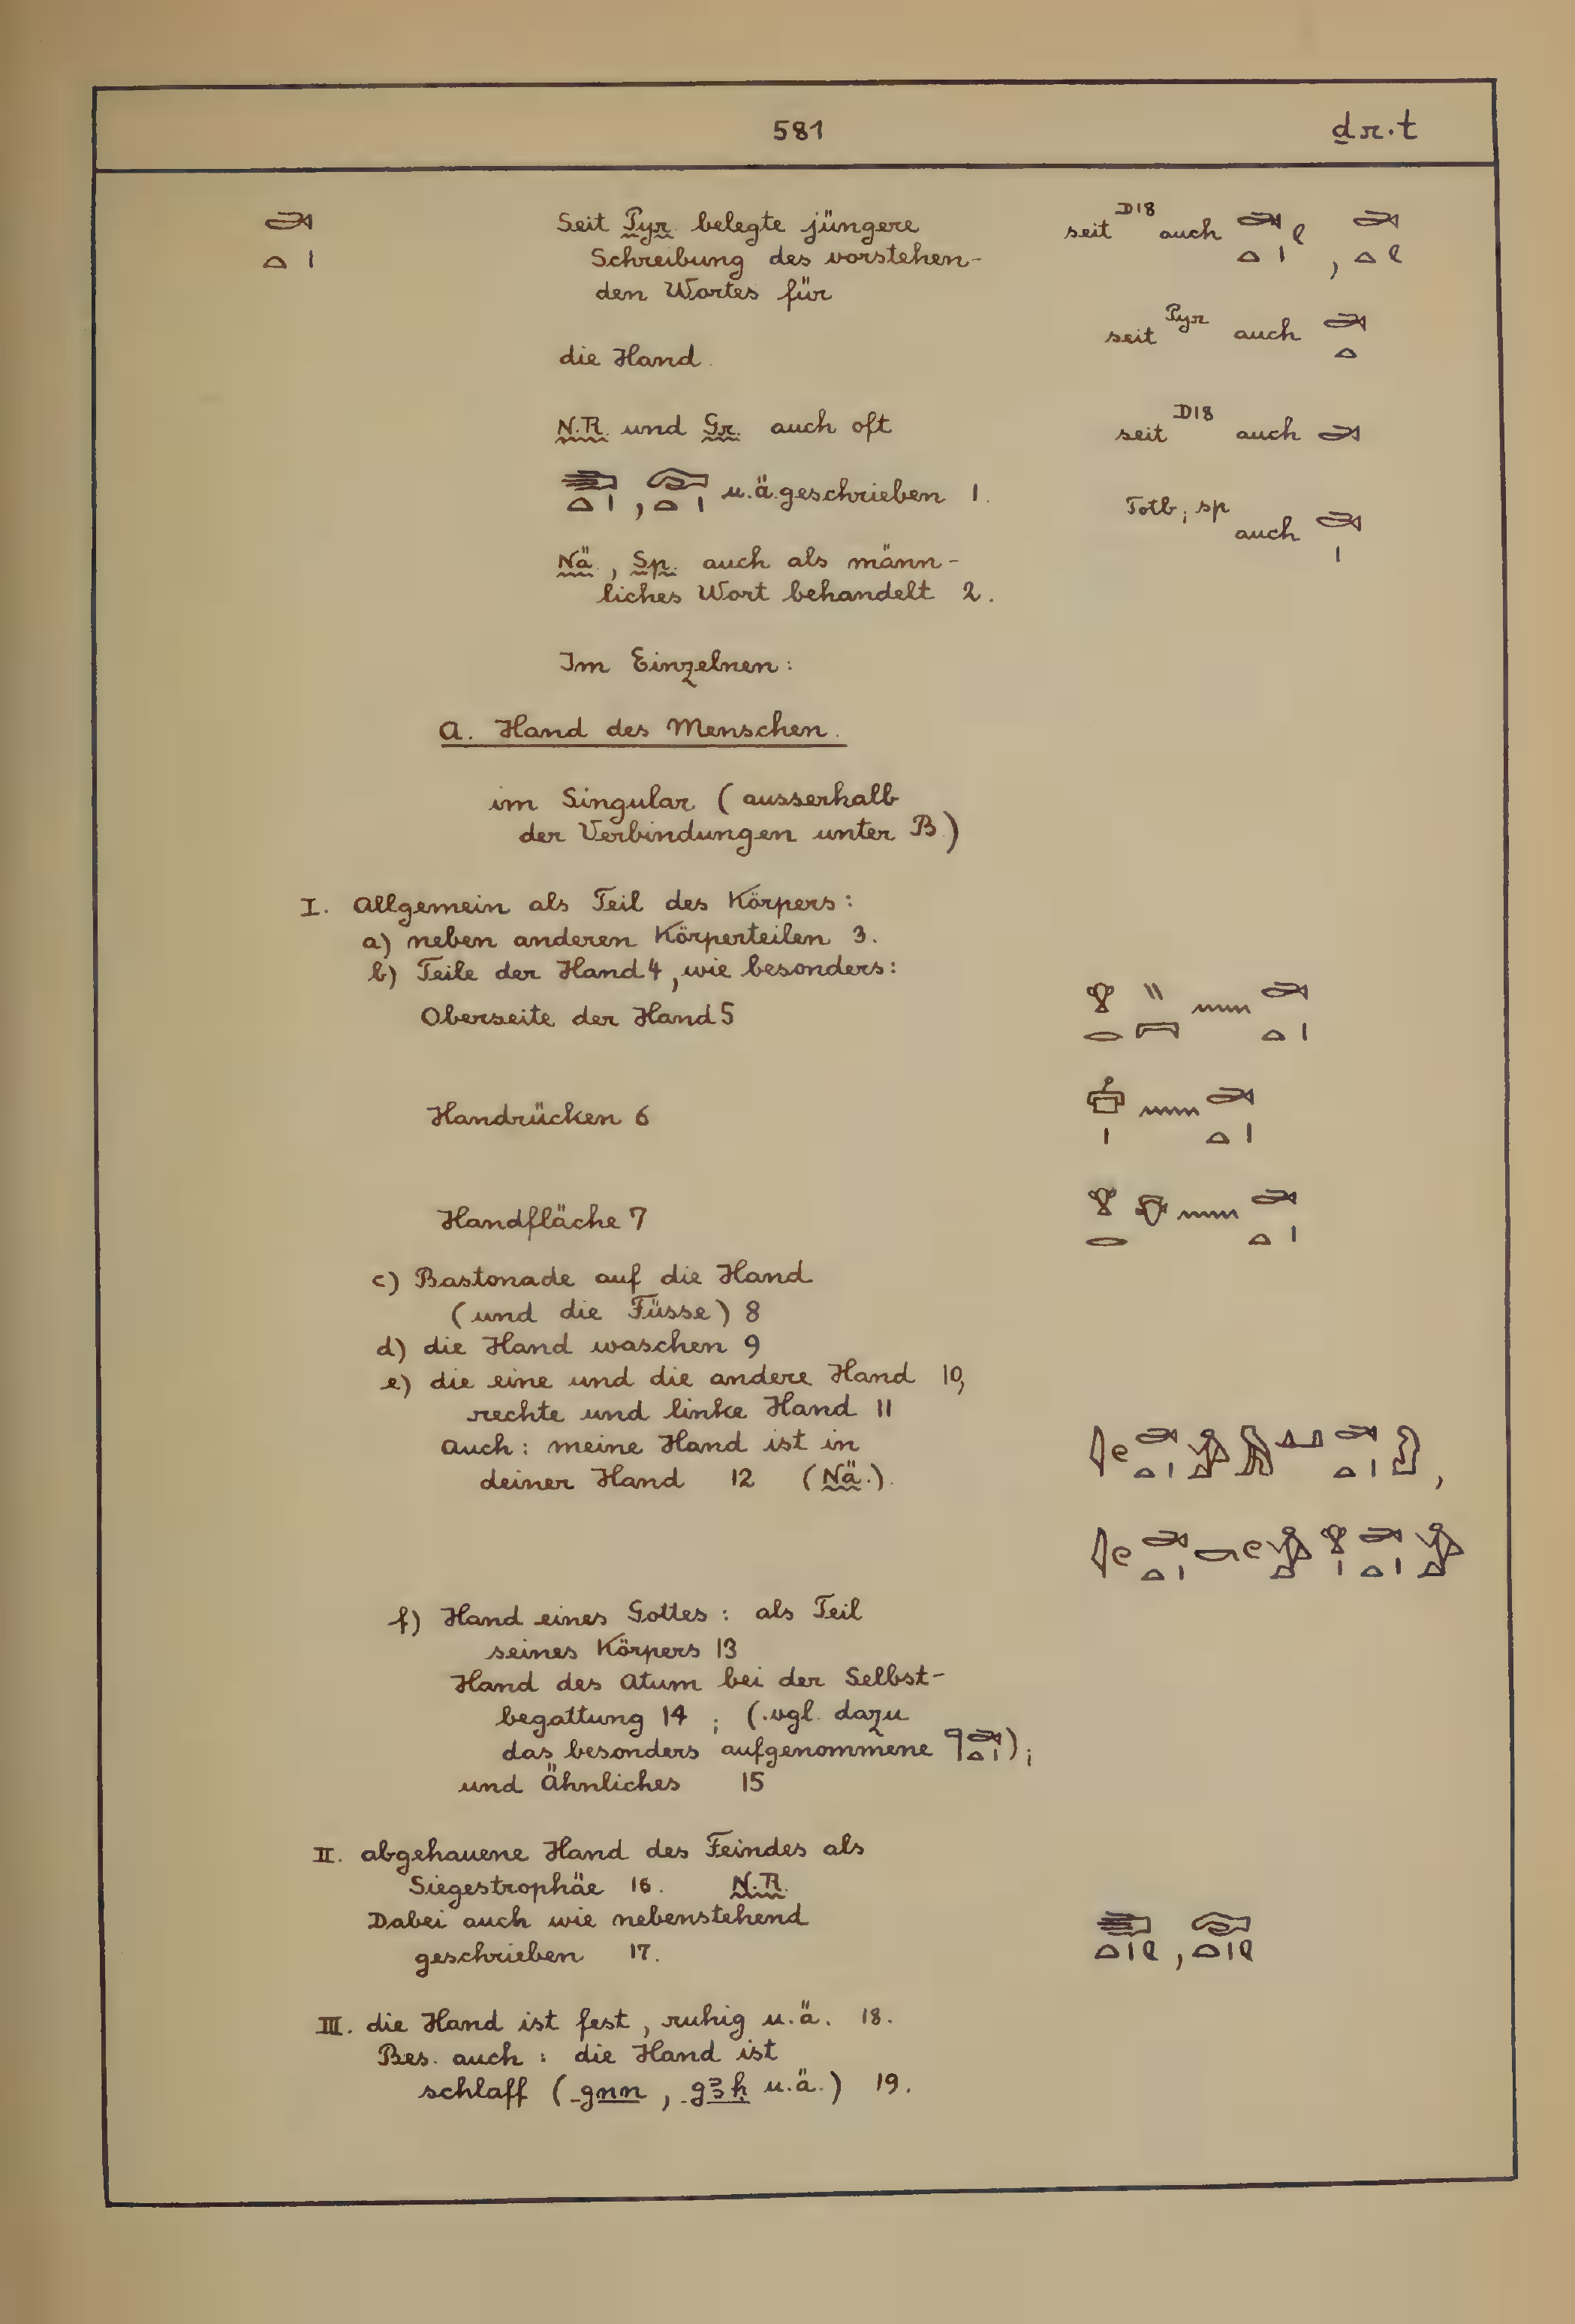 581 ḏr.t
Seit Pyr. belegte jüngere
Schreibung des vorstehen-
den Wortes für
seit D18 auch
,
die Hand.
seit Pyr auch
N.R. und Gr. auch oft
seit D18 auch
, u.ä. geschrieben 1.
Totb; sp
auch
Nä., Sp. auch als männ-
liches Wort behandelt 2.
Im Einzelnen:
A. Hand des Menschen.
im Singular (ausserhalb
der Verbindungen unter B)
I. Allgemein als Teil des Körpers:
a) neben anderen Körperteilen 3.
b) Teile der Hand 4, wie besonders:
Oberseite der Hand 5
Handrücken 6
Handfläche 7
c) Bastonade auf die Hand
(und die Füsse) 8
d) die Hand waschen 9
e) die eine und die andere Hand 10,
rechte und linke Hand 11
Auch: meine Hand ist in
deiner Hand 12 (Nä.).
,
f) Hand eines Gottes: als Teil
seines Körpers 13
Hand des Atum bei der Selbst-
begattung 14; (vgl. dazu
das besonders aufgenommene );
und Ähnliches 15
II. abgehauene Hand des Feindes als
Siegestrophäe 16. N.R.
Dabei auch wie nebenstehend
geschrieben 17.
,
III. die Hand ist fest, ruhig u.ä. 18.
Bes. auch: die Hand ist
schlaff (gnn, gꜣḥ u.ä.) 19.